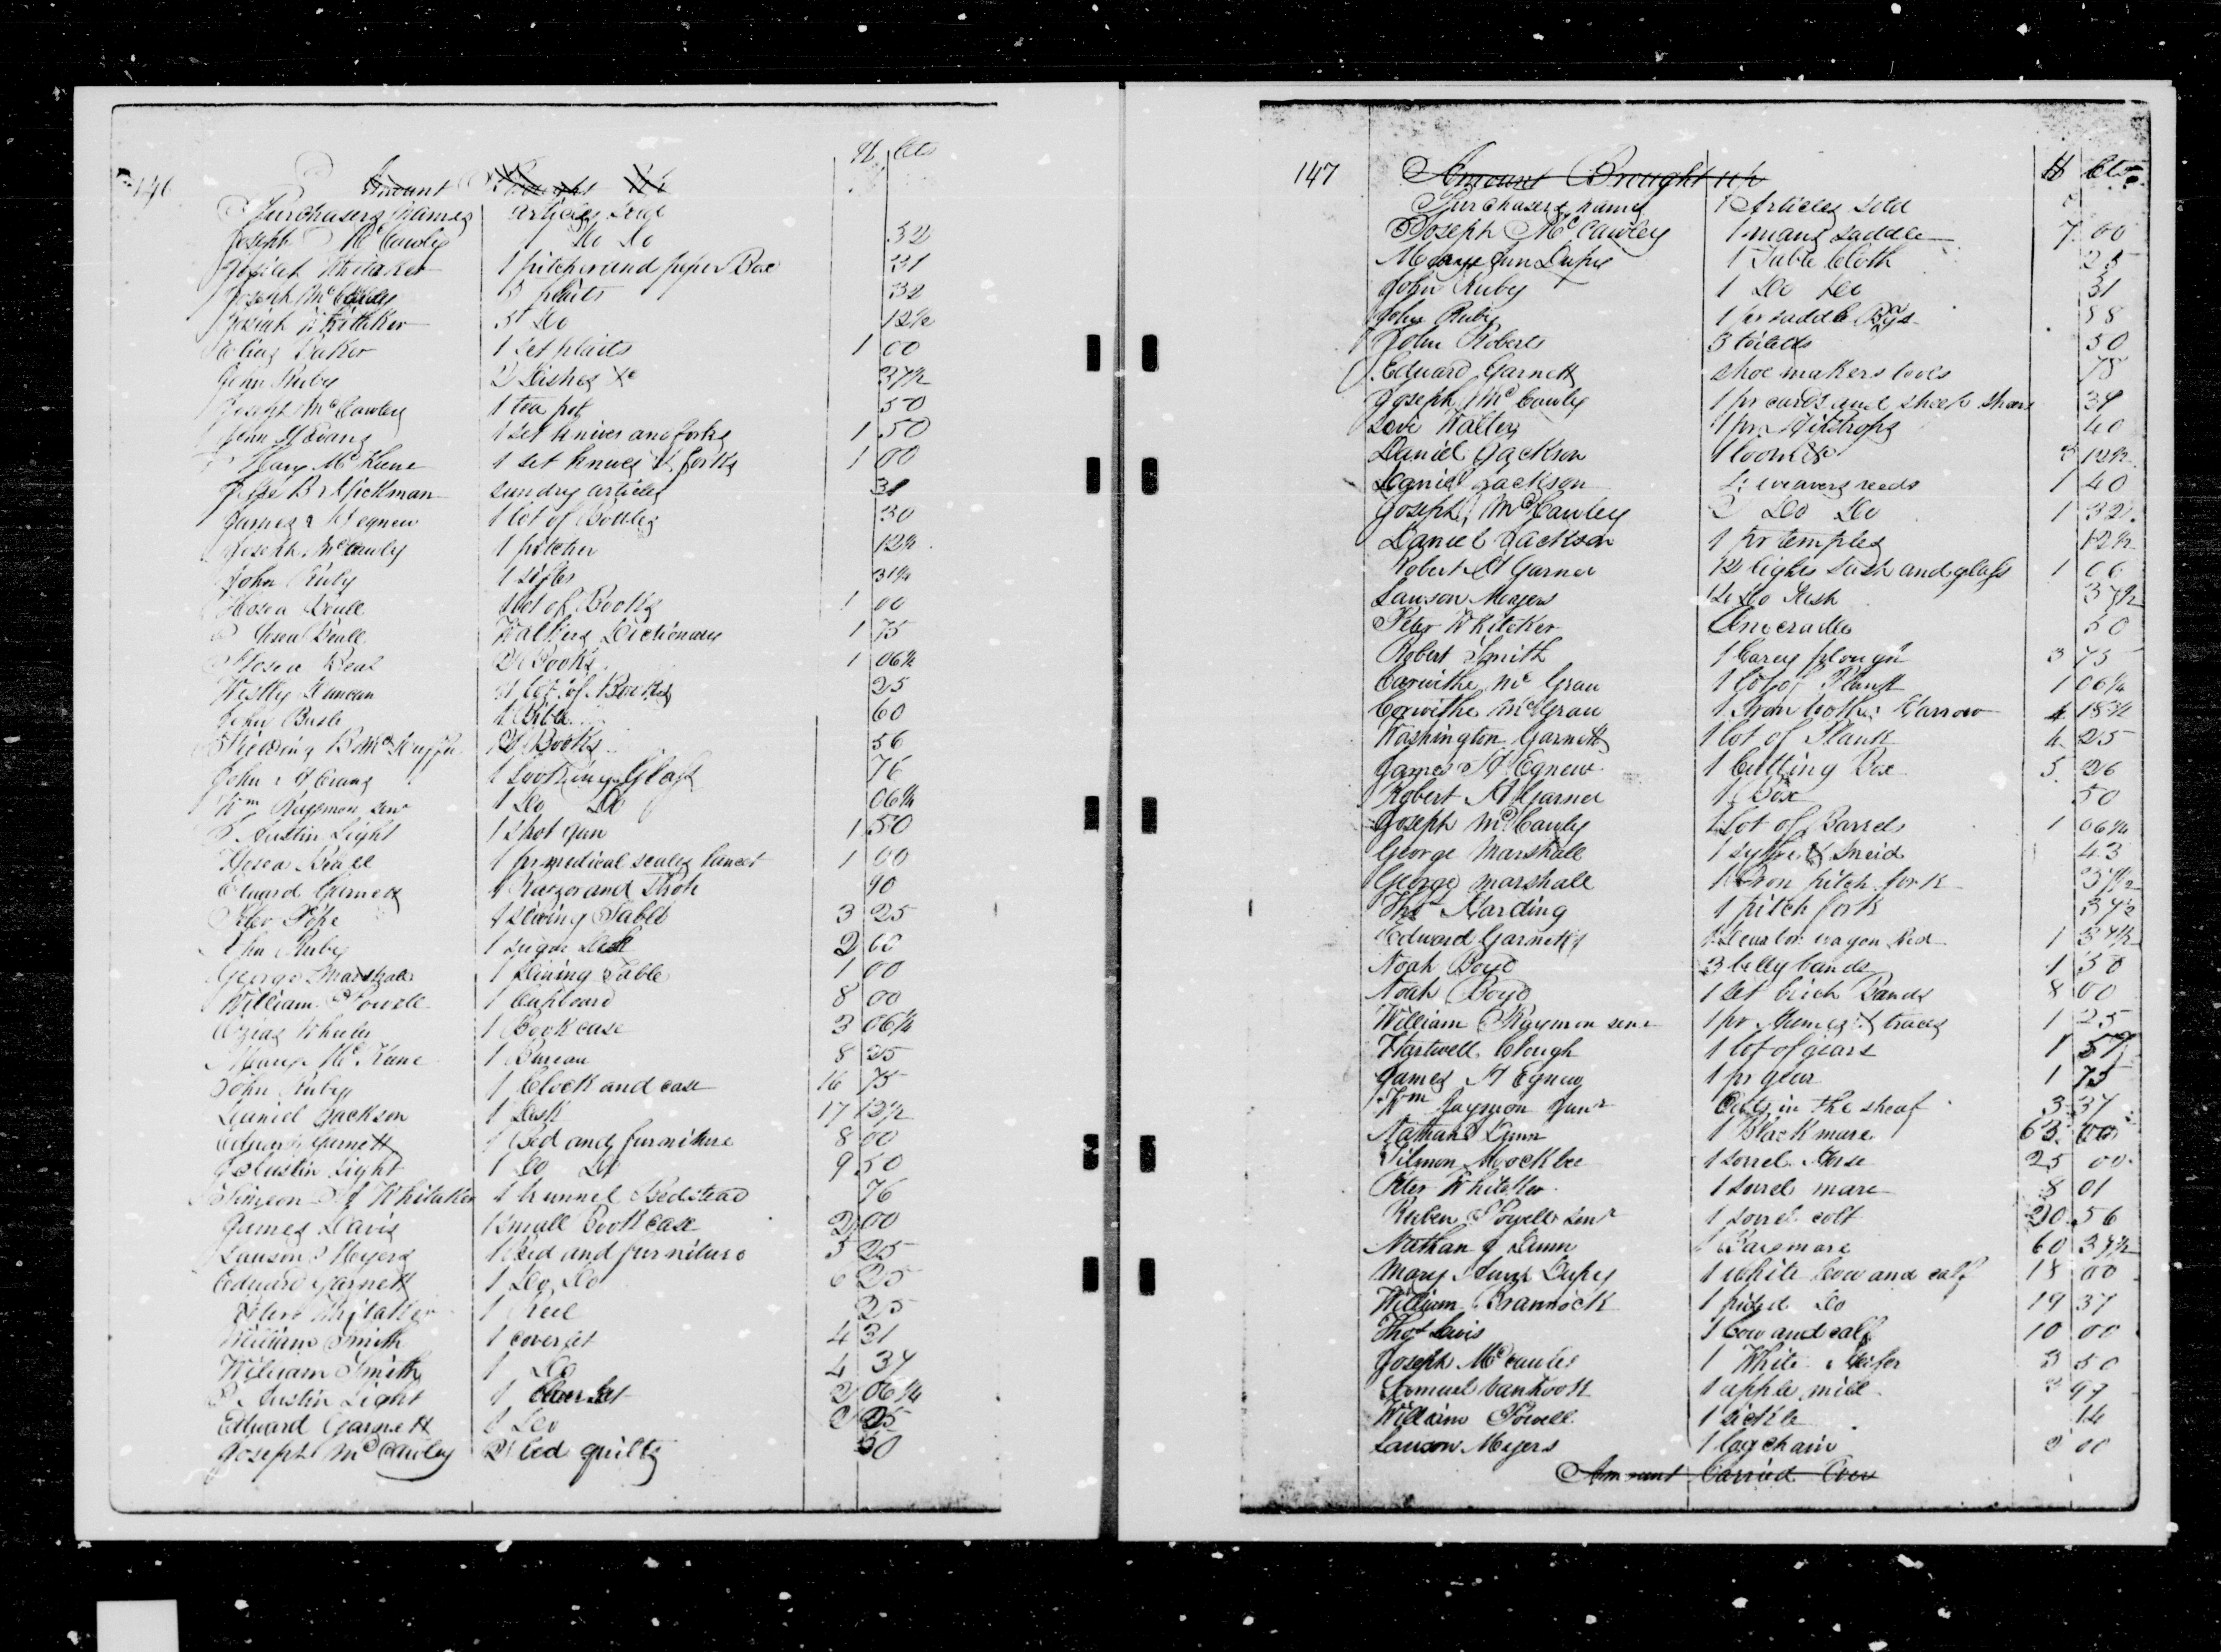 146
$ Cts
Amount Brought up
Purchasers names articles sold
Joseph McCawley 1 Do Do 32
Josiah Whitaker 1 pitcher and peper Box 31
Joseph McCawley 3 plaits 32
Josiah Whitaker 3 Do 12½
Baker 1 set plaits 1 00
John Ruby 2 Dishes &c 37½
Joseph McCawley 1 tea pot 50
John H Evans 1 set knives and forks 1 50
Mary McKune 1 set knives & forks 1 00
Jesse B Hickman sundry articles 31
James H Egnew 1 lot of Bottles 30
Joseph McCawley 1 pitcher 12½
John Ruby 1 sifter 31¼
Hosea Beall 1 lot of Books 1 00
Hosea Beall Walkers Dictionary 1 75
Hosea Beal Books 1 06½
Westly Duncan 1 lot of Books 25
John Bush 1 Bible 60
Fielding Books 56
John H Evans 1 Looking Glass 76
Wm Raymon senr 1 Do Do 06¼
Austin Light 1 shot gun 1 50
Hosea Beall 1 pr medical scales lancet 1 00
Edward Garnett 1 Razor and Strop 90
Peter Pope 1 Dining Table 3 25
John Ruby 1 sugar Desk 2 00
George Marshall 1 Dining Table 1 00
William Powell 1 Cupboard 8 00
Azias Wheeler 1 Book case 3 06¼
Mary McKune 1 Bureau 8 25
John Ruby 1 Clock and case 16 75
Daniel Jackson 1 Desk 17 12½
Edward Garnett 1 Bed and furniture 8 00
Austin Light 1 Do Do 9 50
Simeon H Whitaker 1 trunnel Bedstead 76
James Davis 1 small Book case 2 00
Lawson Meyers 1 Bed and furniture 5 25
Edward Garnett 1 Do Do 6 25
Peter Whitaker 1 Reel 25
William Smith 1 coverlet 4 31
William Smith 1 Do 4 37
Austin Light 1 Coverlet 2 06¼
Edward Garnett 1 Do 2 25
Joseph McCawley 2 bed quilts 50
147 Amount Brought up $ Cts
Purchasers names Articles sold
Joseph McCawley 1 mans saddle 7 00
Mary Ann Dupey 1 Table Cloth 25
John Ruby 1 Do Do 31
John Ruby 1 pr saddle Bags 88
John Roberts 3 50
Edward Garnett shoe makers tools 78
Joseph McCawley 1 pr cards and sheep shears 37
Walters 1 pr 40
Daniel Jackson 1 loom &c 12½
Daniel Jackson weavers reeds 1 40
Joseph McCawley Do Do 1 32
Daniel Jackson 1 pr temples 12½
Robert H Garner 12 lights sash and glass 1 00
Lawson Meyers 12 Do 37½
Peter Whitaker One cradle 50
Robert Smith 1 Carey plough 3 75
Corwithe McGrau 1 lot of Plank 1 06¼
Corwithe McGrau 1 Iron toothe Harrow 4 18¾
Washington Garnett 1 lot of Plank 4 25
James H Egnew 1 Cutting Box 5 26
Robert H Garner 1 Box 50
Joseph McCawley 1 lot of Barrels 1 06¼
George Marshall 1 sythe & sneid 43
George Marshall 1 Iron pitch fork 37½
Thos Harding 1 pitch fork 37½
Edward Garnett wagon Bed 1 37½
Noah Boyd 3 belly bands 1 50
Noah Boyd 1 set brich Bands 8 00
William Raymon senr 1 pr Hames & traces 1 25
Hartwell Clough 1 lot of gears 1 57
James H Egnew 1 pr gear 1 75
Wm Raymon Junr Oats in the sheaf 3 37
Nathan Dunn 1 Black mare 63 00
Tilmon Mockbee 1 sorrel Horse 25 00
Peter Whitaker 1 sorrel mare 8 01
Reuben Powell senr 1 sorrel colt 20 56
Nathan J Dunn 1 Bay mare 60 37½
Mary Ann Dupey 1 white Cow and calf 18 00
William Brannock 1 pided Do 19 37
Thos Lewis 1 Cow and calf 10 00
Joseph McCawley 1 White Heifer 3 50
Samuel Vanhook 1 apple mill 97
William Powell 1 sickle 14
Lawson Meyers 1 log chain 2 00
Amount Carried Over